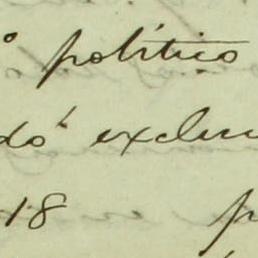 º político
do' exclu
18 p